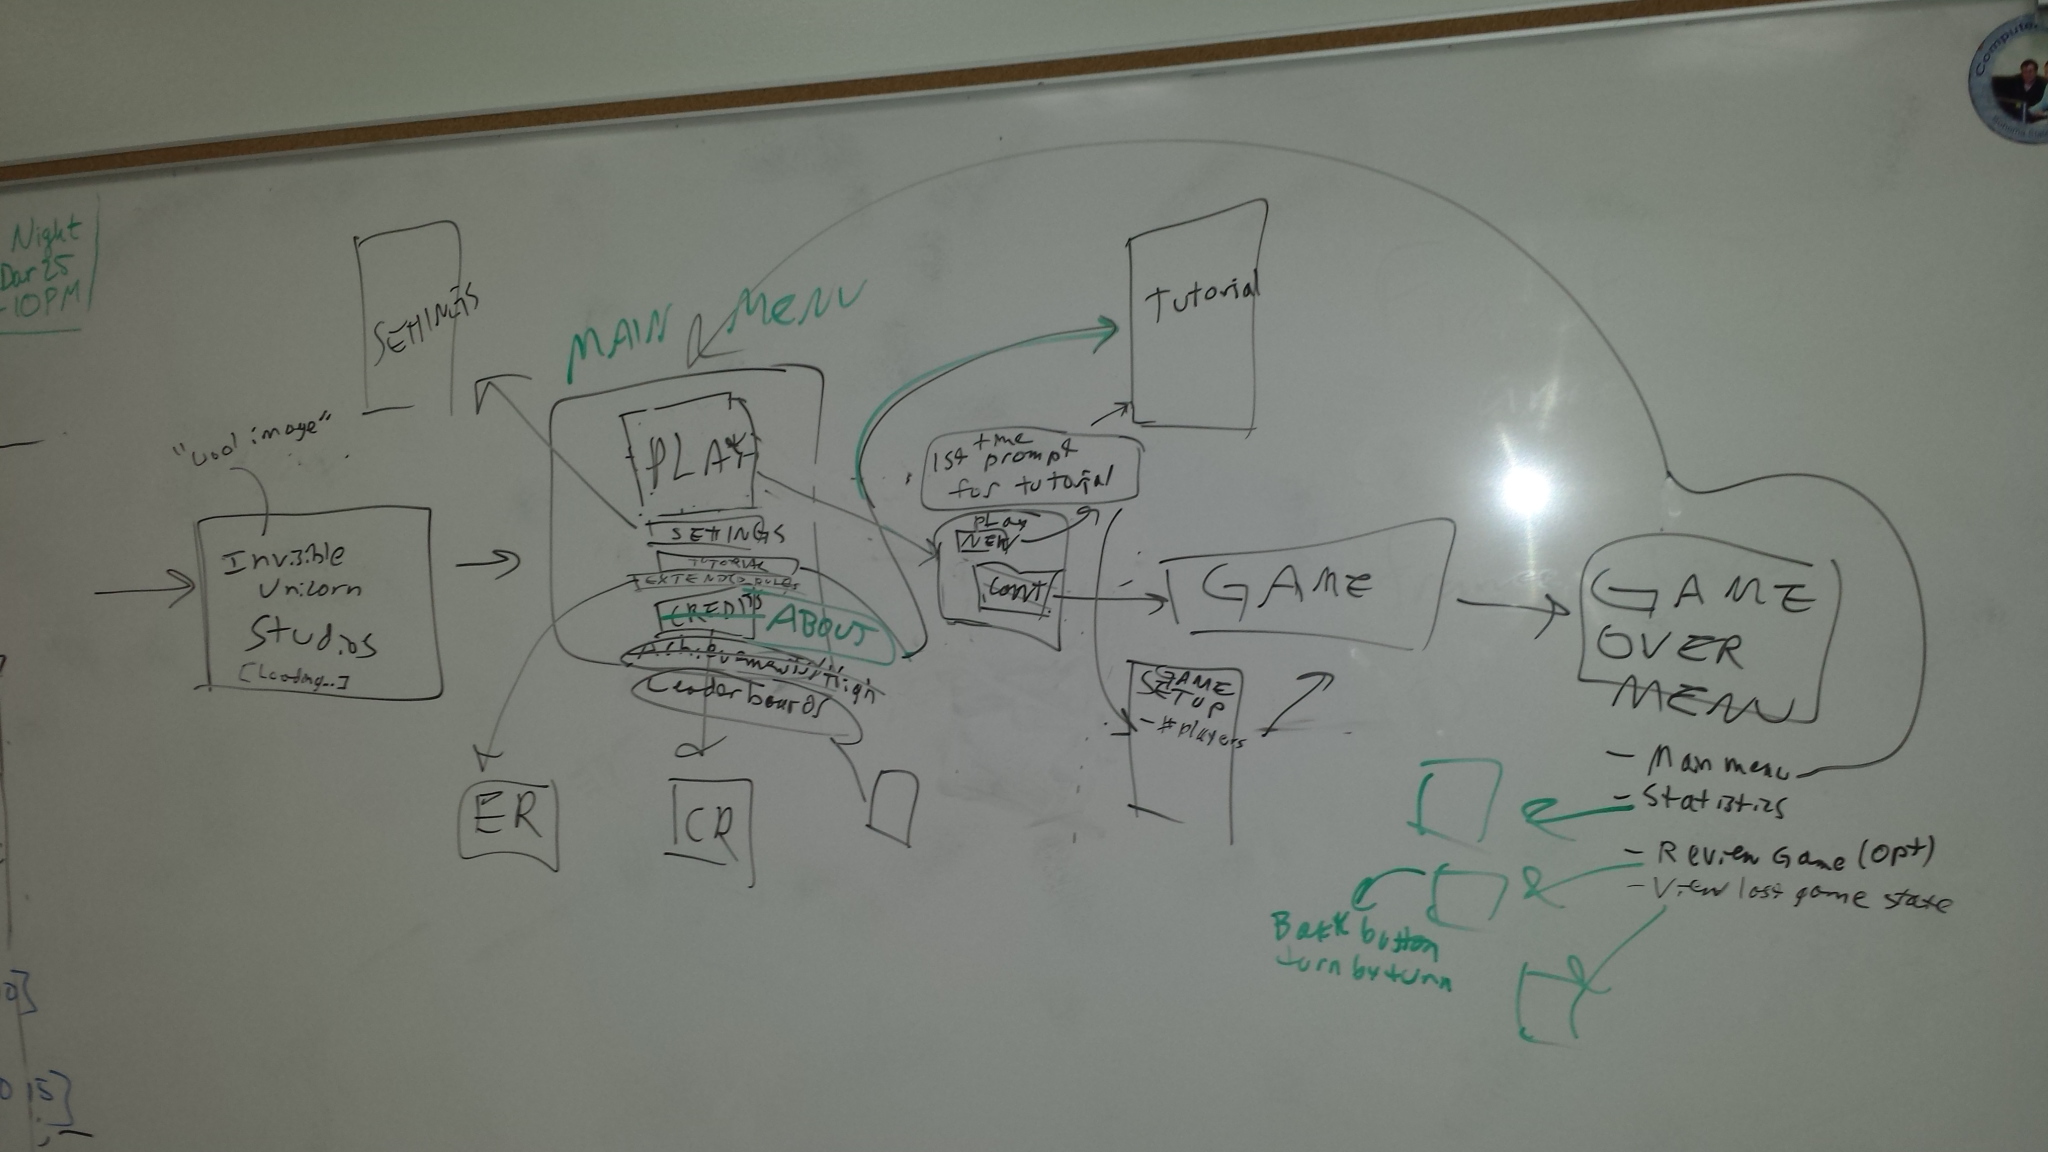 Night
-10PM
SETTINGS
MAIN MENU
"cool image"
Invisible
Unicorn
Studios
[Loading...]
PLAY
SETTINGS
TUTORIAL
EXTENDED RULES
CREDITS
ABOUT
Leaderboards
ER
CR
Tutorial
1st time
prompt
for tutorial
PLAY
NEW
CONT
GAME
GAME
SETUP
- # players
GAME
OVER
MENU
- Main menu
- Statistics
- Review Game (opt)
- View last game state
Back button
turn by turn